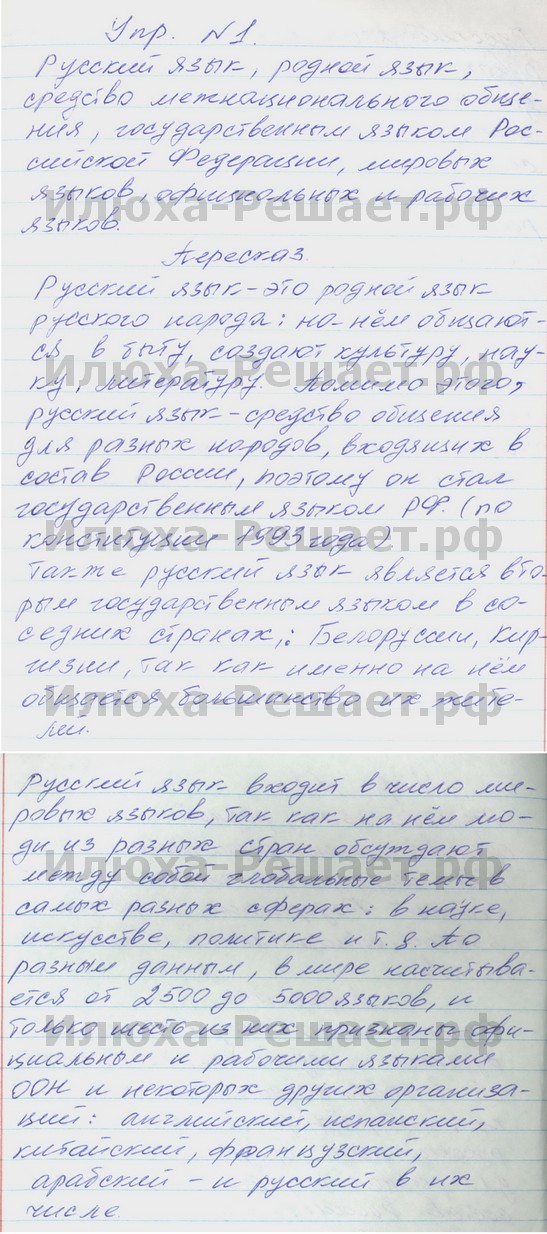 Упр. №1.
Русский язык, родной язык,
средство межнационального обще-
ния, государственным языком Рос-
сийской Федерации, мировых
языков, официальных и рабочих
Илюха-Решает.рф
языков.
Пересказ.
Русский язык - это родной язык
русского народа: на нём общают-
ся в быту, создают культуру, нау-
Илюха-Решает.рф
ку, литературу. Помимо этого,
русский язык - средство общения
для разных народов, входящих в
состав России, поэтому он стал
государственным языком РФ. (по
Илюха-Решает.рф
конституции 1993 года)
Также русский язык является вто-
рым государственным языком в со-
седних странах,: Белоруссии, Кир-
гизии, так как именно на нём
Илюха-Решает.рф
общается большинство их жите-
лей.
Русский язык входит в число ми-
ровых языков, так как на нём лю-
ди из разных стран обсуждают
Илюха-Решает.рф
между собой глобальные темы в
самых разных сферах: в науке,
искусстве, политике и т.д. По
разным данным, в мире насчитыва-
ется от 2500 до 5000 языков, и
только шесть из них признаны офи-
Илюха-Решает.рф
циальным и рабочими языками
ООН и некоторых других организа-
ций: английский, испанский,
китайский, французский,
Илюха-Решает.рф
арабский - и русский в их
числе.